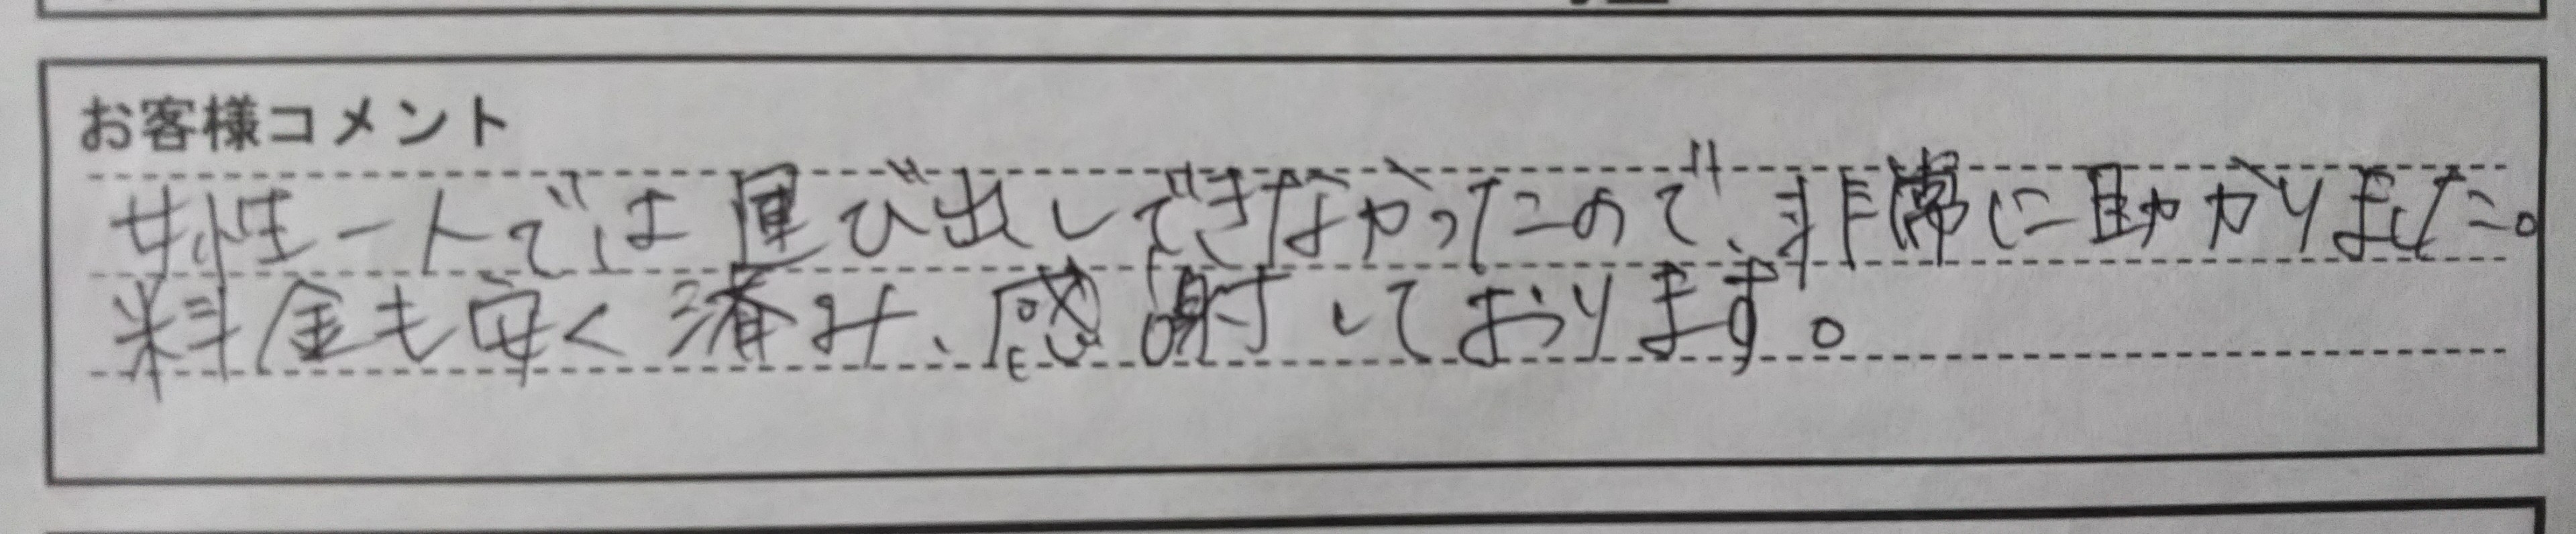 お客様コメント
女性一人では運び出しできなかったので、非常に助かりました。
料金も安く済み、感謝しております。